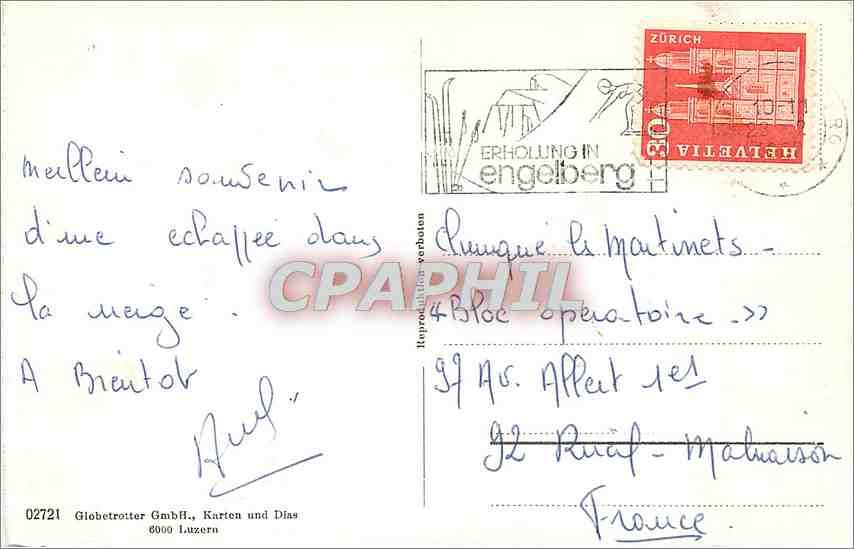 Meilleur souvenir
d'une echappée dans
la neige.
A Bientot
02721 Globetrotter GmbH., Karten und Dias
6000 Luzern
Reproduktion verboten
CPAPHIL
ERHOLUNG IN
engelberg
ZÜRICH
HELVETIA
30
Clinique les Martinets -
"Bloc operatoire ->>
97 Av. Albert 1er
92 Rueil - Malmaison
France.